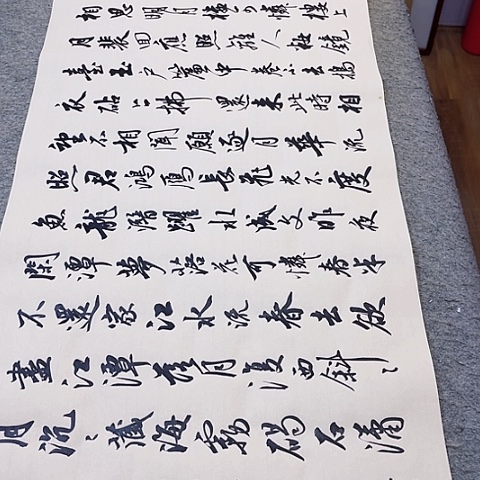 相思明月樓可憐樓上
月裴回應照離人妝鏡
臺玉戶簾中卷不去搗
衣砧上拂還來此時相
望不相聞願逐月華流
照君鴻雁長飛光不度
魚龍潛躍水成文昨夜
閑潭夢落花可憐春半
不還家江水流春去欲
盡江潭落月復西斜〻
月沉〻藏海霧碣石瀟